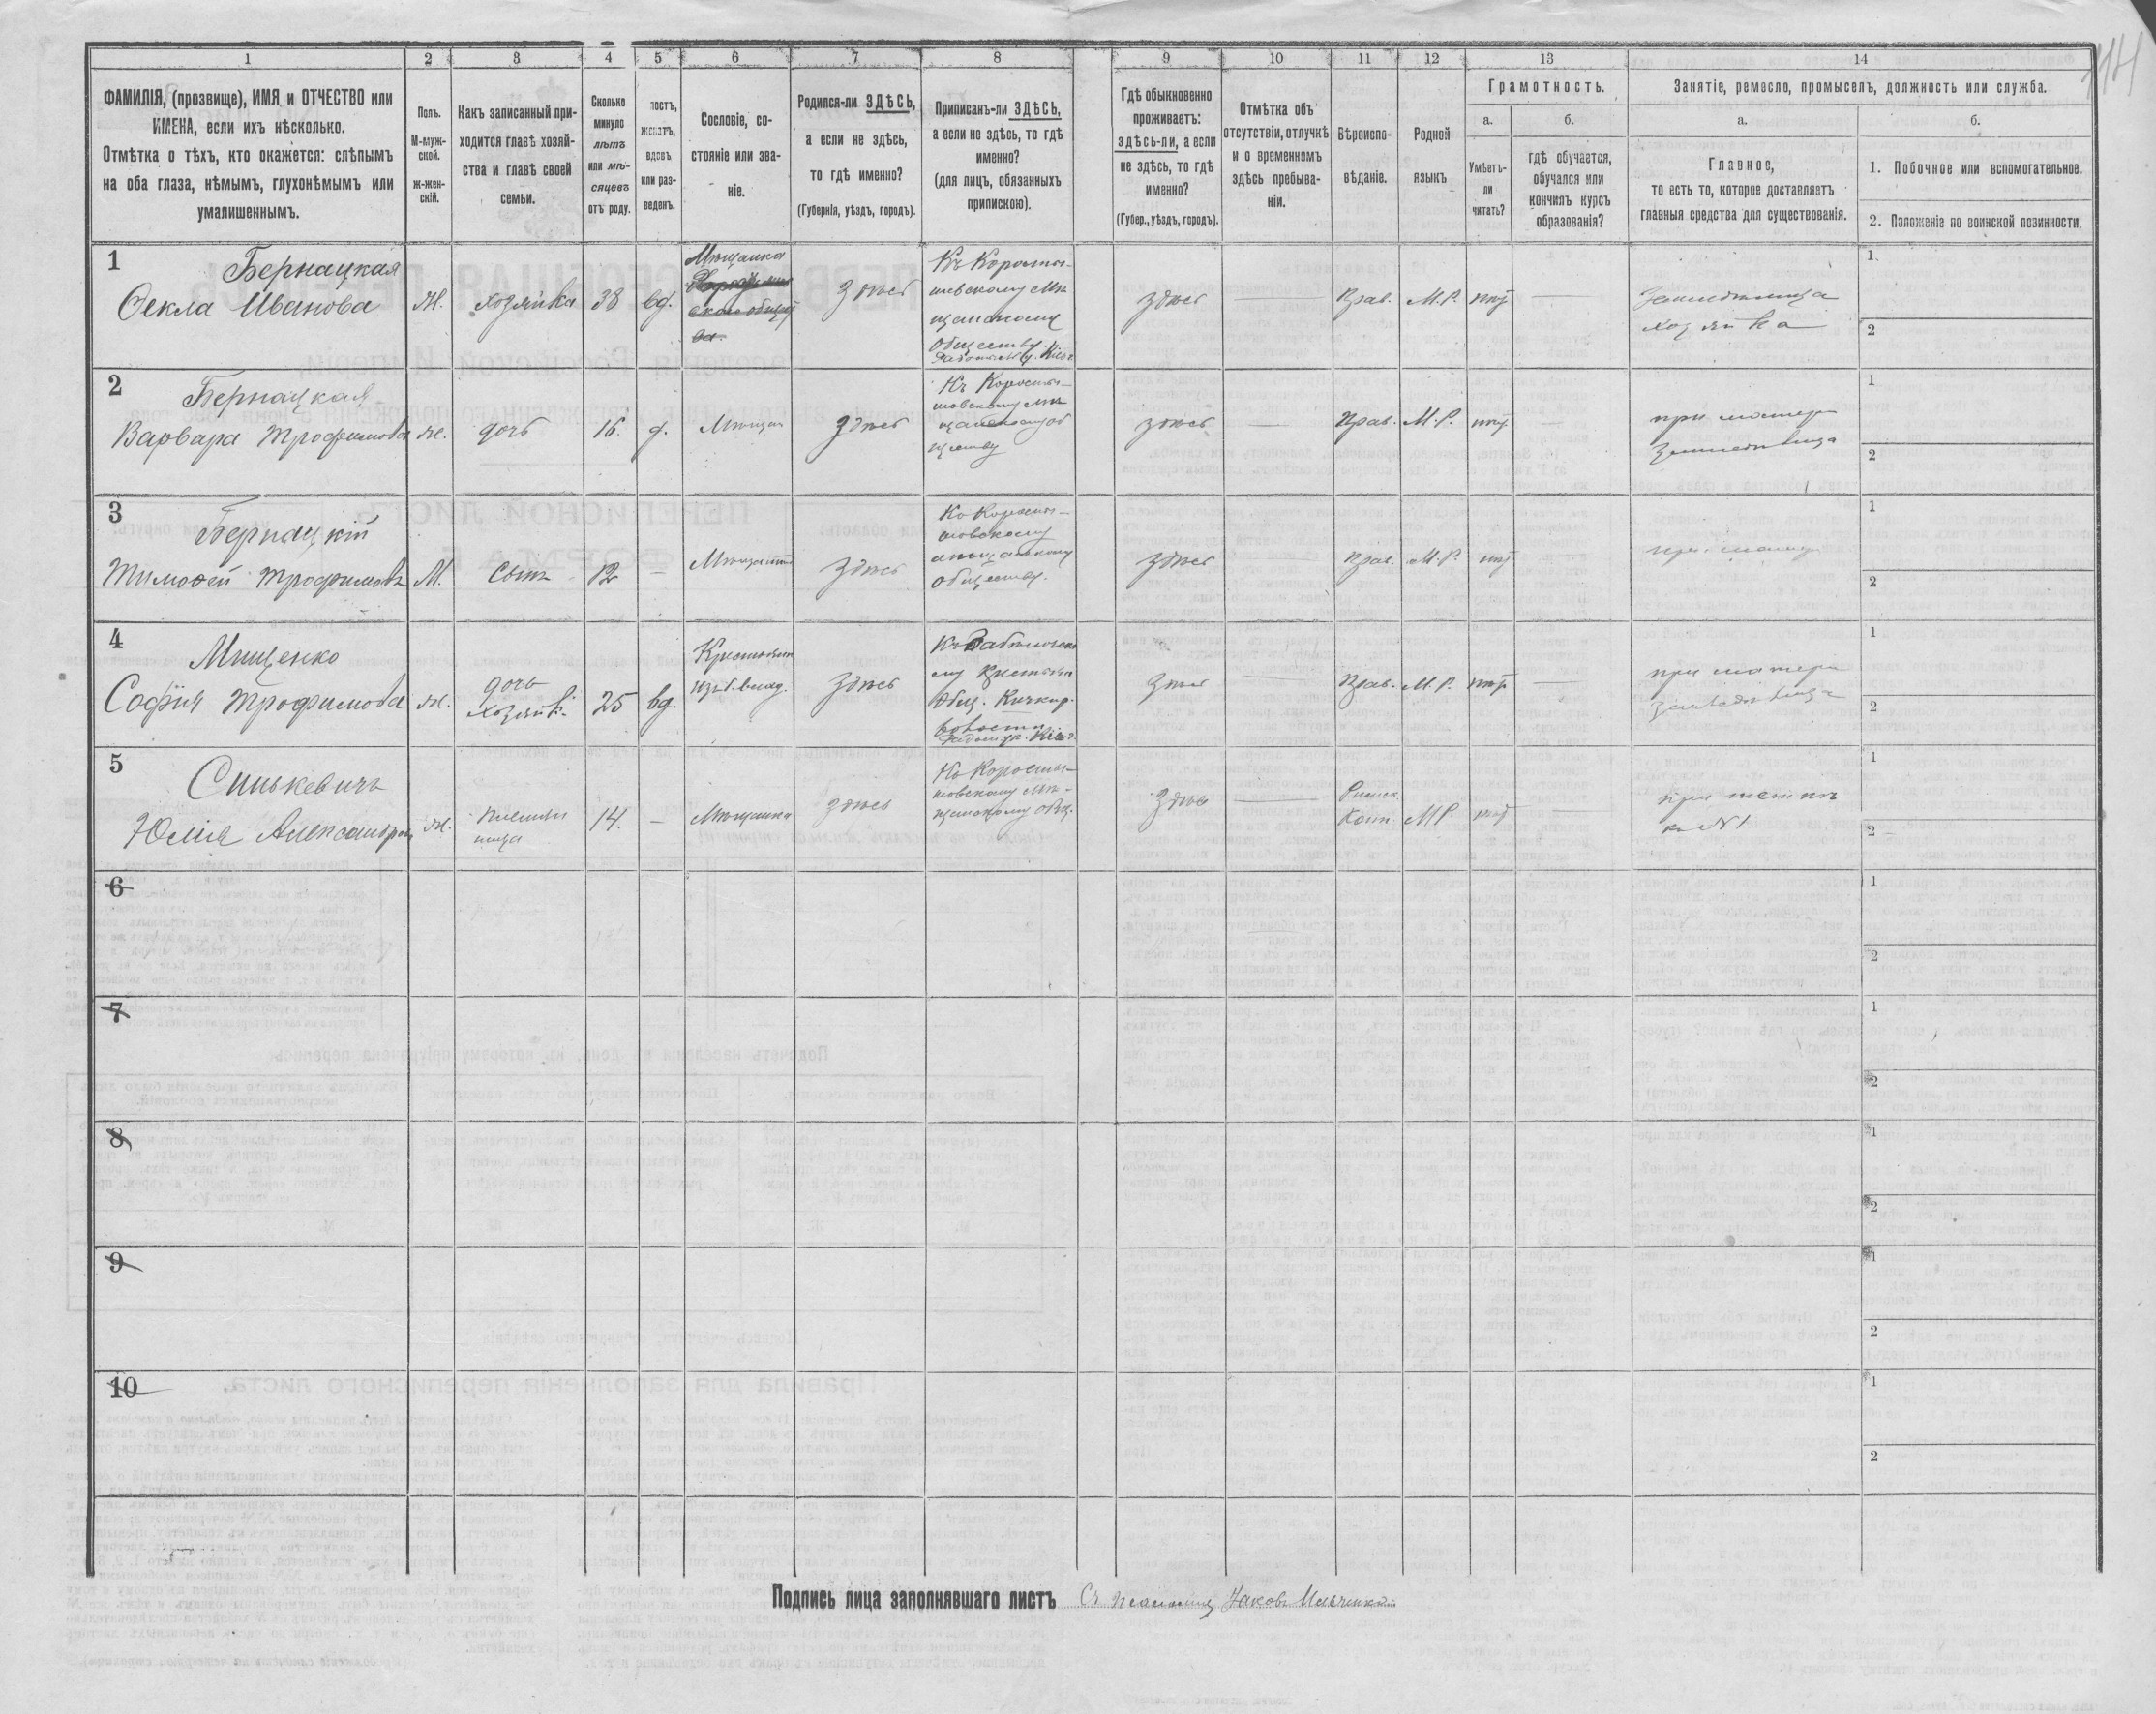 114
1 2 3 4 5 6 7 8 9 10 11 12 13 14
ФАМИЛІЯ, (прозвище), ИМЯ и ОТЧЕСТВО или
ИМЕНА, если ихъ нѣсколько.
Отмѣтка о тѣхъ, кто окажется: слѣпымъ
на оба глаза, нѣмымъ, глухонѣмымъ или
умалишеннымъ.
Полъ.
М-муж-
ской.
ж-жен-
скій.
Какъ записанный при-
ходится главѣ хозяй-
ства и главѣ своей
семьи.
Сколько
минуло
лѣтъ
или мѣ-
сяцевъ
отъ роду.
лостъ,
женатъ,
вдовъ
или раз-
веденъ.
Сословіе, со-
стояніе или зва-
ніе.
Родился-ли ЗДѢСЬ,
а если не здѣсь,
то гдѣ именно?
(Губернія, уѣздъ, городъ).
Приписанъ-ли ЗДѢСЬ,
а если не здѣсь, то гдѣ
именно?
(для лицъ, обязанныхъ
припискою).
Гдѣ обыкновенно
проживаетъ:
здѣсь-ли, а если
не здѣсь, то гдѣ
именно?
(Губер., уѣздъ, городъ).
Отмѣтка объ
отсутствіи, отлучкѣ
и о временномъ
здѣсь пребыва-
ніи.
Вѣроиспо-
вѣданіе.
Родной
языкъ
Грамотность.
а.
Умѣетъ-
ли
читать?
б.
гдѣ обучается,
обучался или
кончилъ курсъ
образованія?
Занятіе, ремесло, промыселъ, должность или служба.
а.
Главное,
то есть то, которое доставляетъ
главныя средства для существованія.
б.
1. Побочное или вспомогательное.
2. Положеніе по воинской повинности.
1
Бернацкая
Ѳекла Иванова
Ж.
хозяйка
38
вд.
Мѣщанка
здѣсь
Къ Коросты-
шевскому Мѣ
щанскому
Обществу.
здѣсь
Прав.
М.Р.
нѣт
хозяйка
1
2
2
Бернацкая
Варвара Трофимова
ж.
дочь
16.
д.
здѣсь
Къ Коросты-
шевскому Мѣ
щанскому об
ществу
здѣсь
Прав.
М.Р.
нѣт
при матери
1
2
3
Бернацкій
Тимоѳей Трофимовъ
М.
Сынъ
12
здѣсь
Къ Коросты-
шевскому
мѣщанскому
обществу.
здѣсь
Прав.
М.Р.
нѣт
при матери
1
2
4
Мищенко
Софія Трофимова
ж.
дочь
хозяйк.
25
вд.
здѣсь
здѣсь
Прав.
М.Р.
нѣт
при матери
1
2
5
Синькевичъ
Юлія Александров
ж.
племян
ница
14.
Мѣщанка
здѣсь
Къ Коросты-
шевскому Мѣ-
щанскому Общ.
здѣсь
Римск.
Кат.
М.Р.
нѣт
при теткѣ
к № 1.
1
2
6
1
2
7
1
2
8
1
2
9
1
2
10
1
2
Подпись лица заполнявшаго листъ
Яковъ